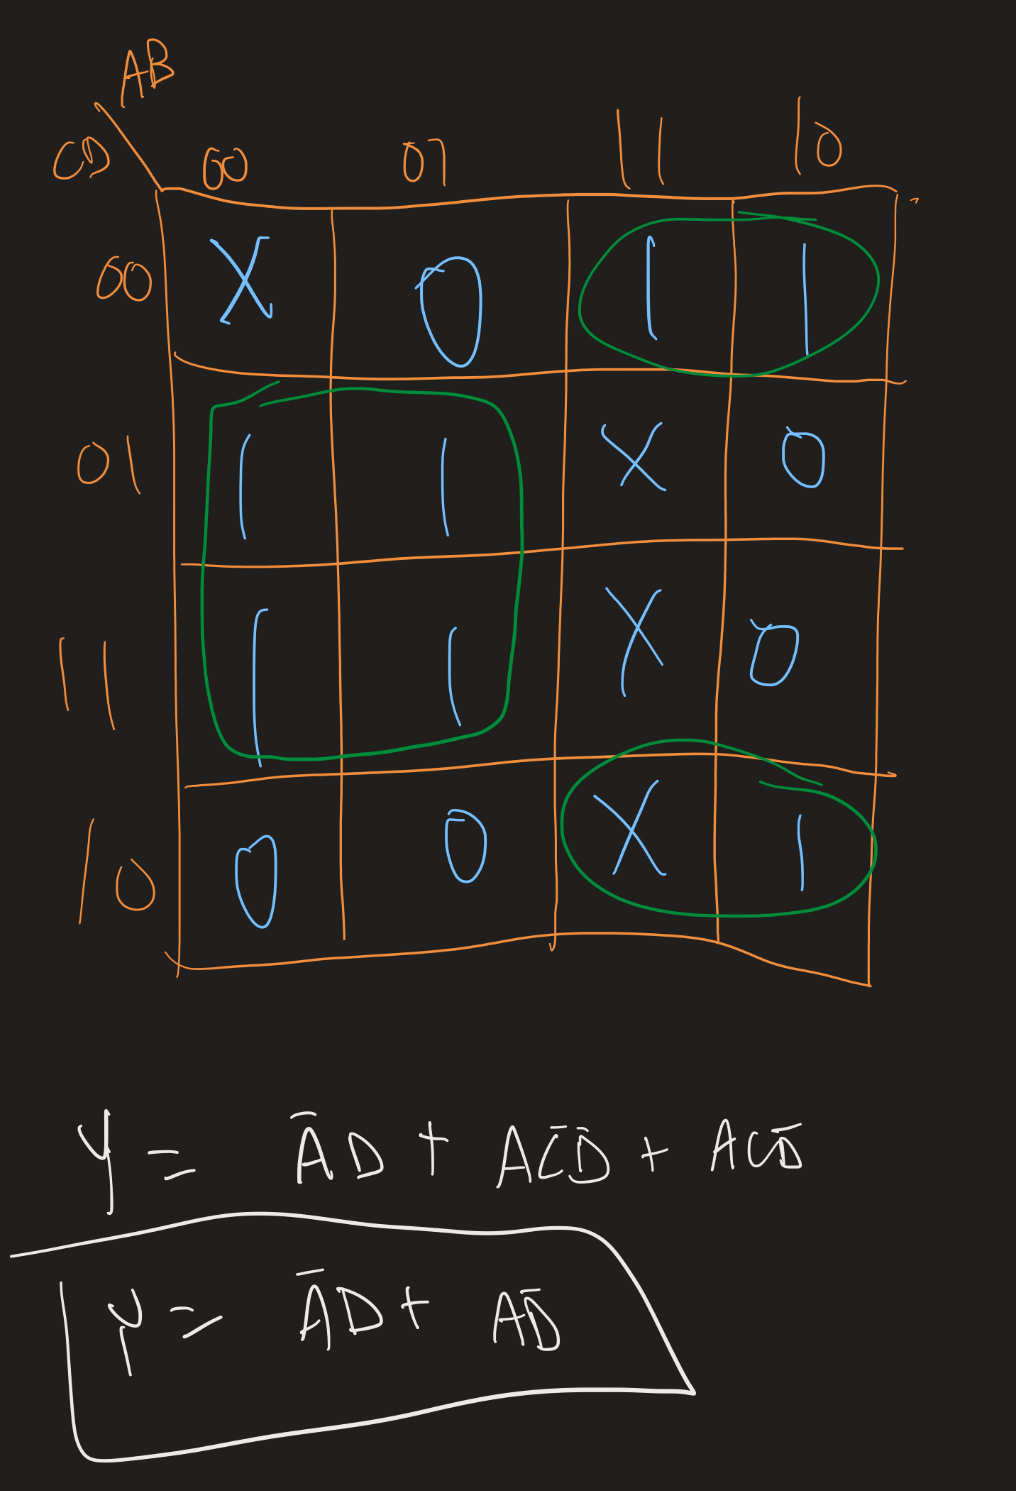 AB
CD 00 01 11 10
00 X 0 1 1
01 1 1 X 0
11 1 1 X 0
10 0 0 X 1
Y = A̅D + AC̅D̅ + ACD̅
Y = A̅D + AD̅